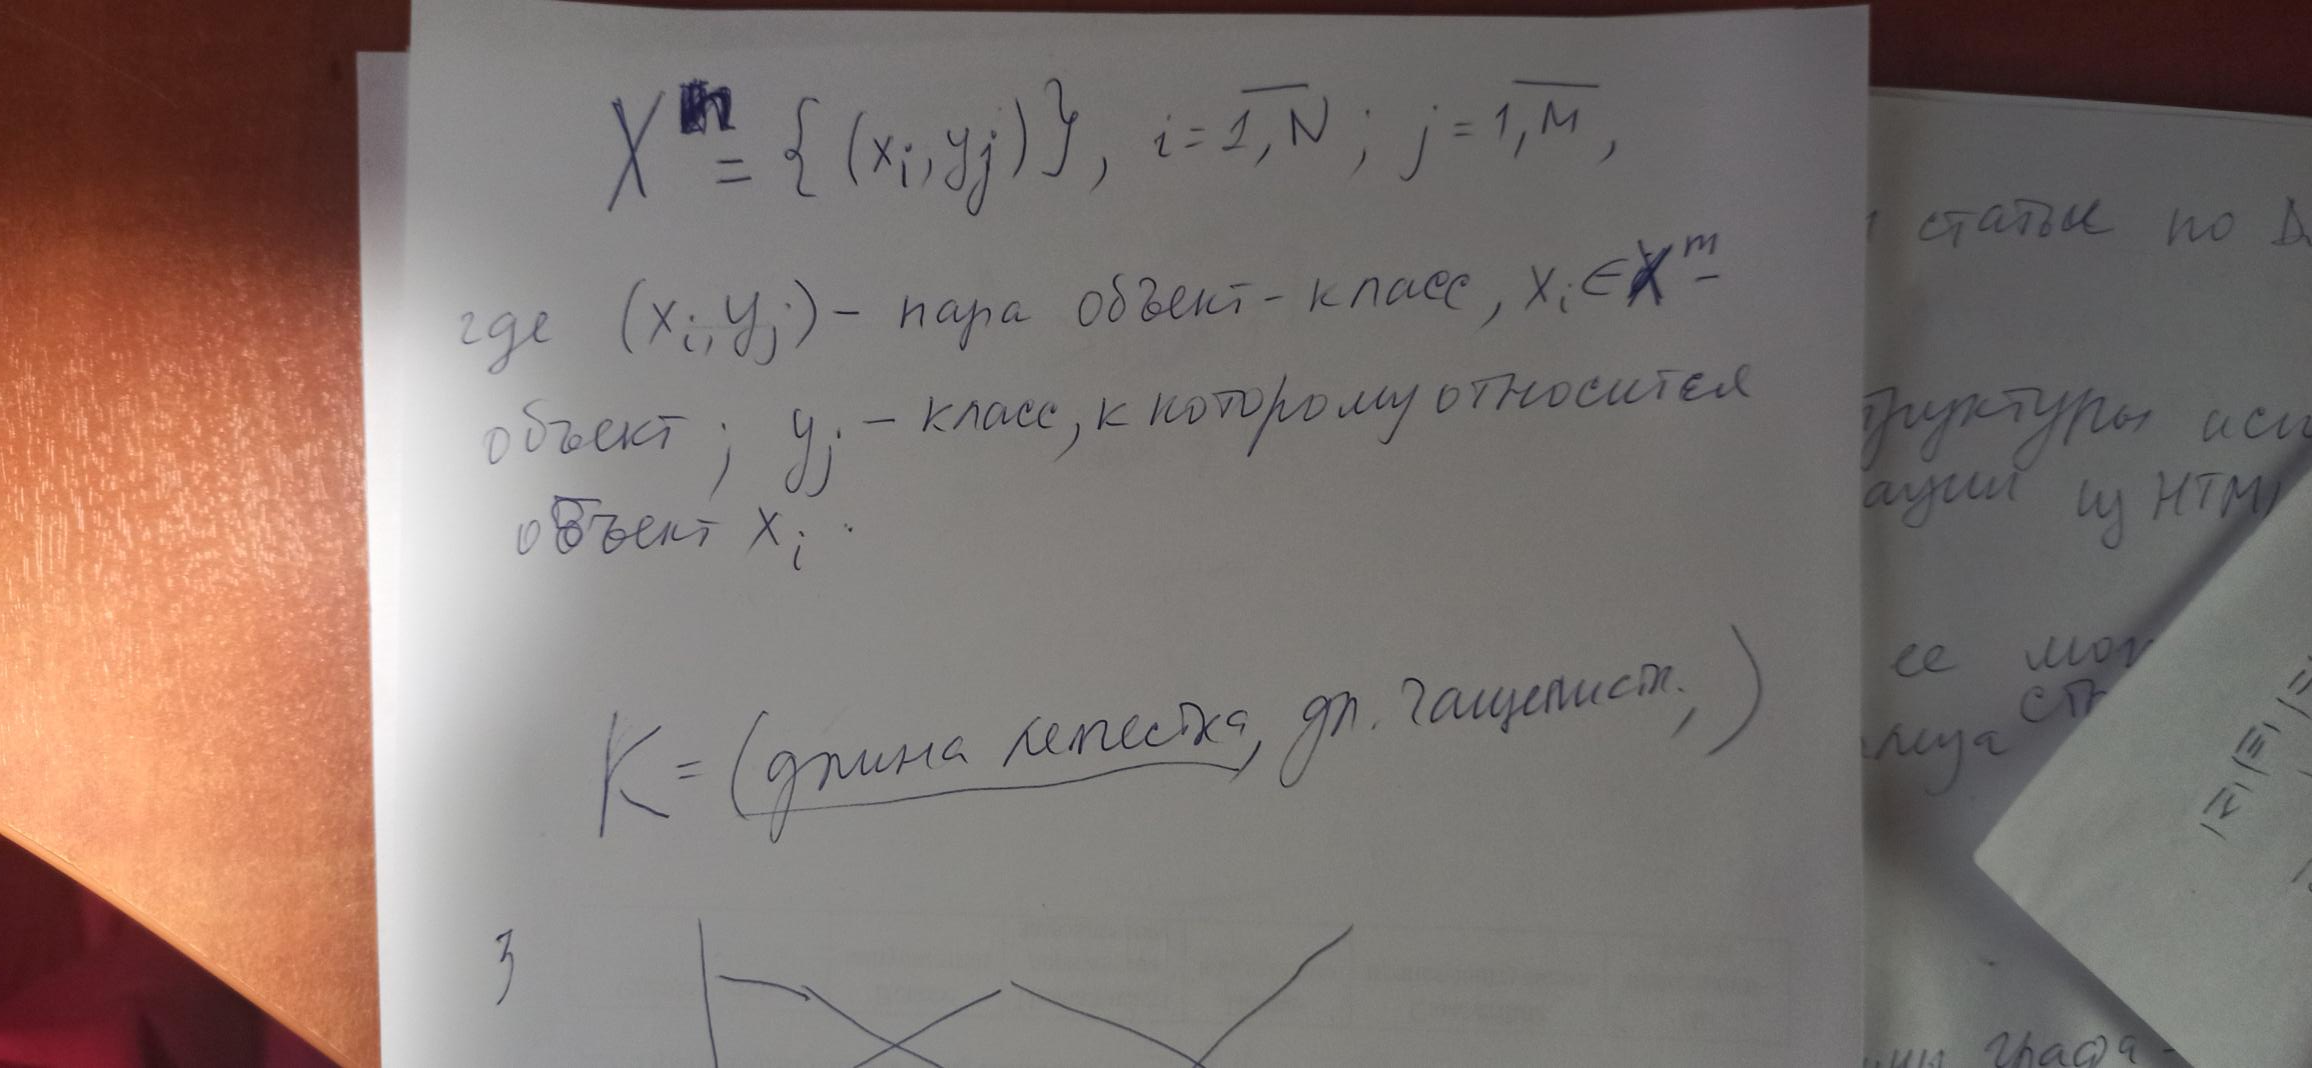 X^m = {(x_i, y_j)}, i = 1,N; j = 1,M,
где (x_i, y_j) – пара объект-класс, x_i ∈ X^m –
объект; y_j – класс, к которому относится
объект x_i.
K = (длина лепестка, дл. чащелистн.,)
3
статье по
структуры
из HTML
ее
графа-